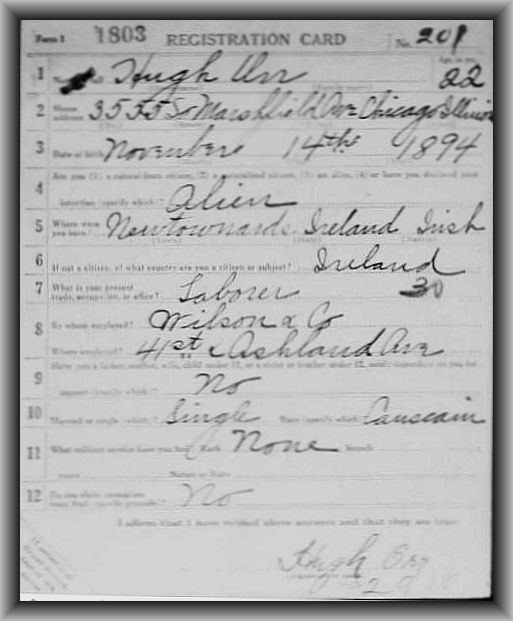 Form 1 1803 REGISTRATION CARD No. 201
1 Hugh Orr Age, in yrs. 22
2 Home address 3555 So Marshfield Ave Chicago Illinois
3 Date of birth November 14th 1894
Are you (1) a natural-born citizen, (2) a naturalized citizen, (3) an alien, (4) or have you declared your
4 intention (specify which)? Alien
5 Where were you born? Newtownards Ireland Irish
6 If not a citizen, of what country are you a citizen or subject? Ireland
7 What is your present trade, occupation, or office? Laborer 30
8 By whom employed? Wilson & Co
Where employed? 41st & Ashland Ave
Have you a father, mother, wife, child under 12, or a sister or brother under 12, solely dependent on you for
9 support (specify which)? No
10 Married or single (which)? Single Race (specify which)? Causcain
11 What military service have you had? Rank None branch
years Nation or State
12 Do you claim exemption from draft (specify grounds)? No
I affirm that I have verified above answers and that they are true.
Hugh Orr